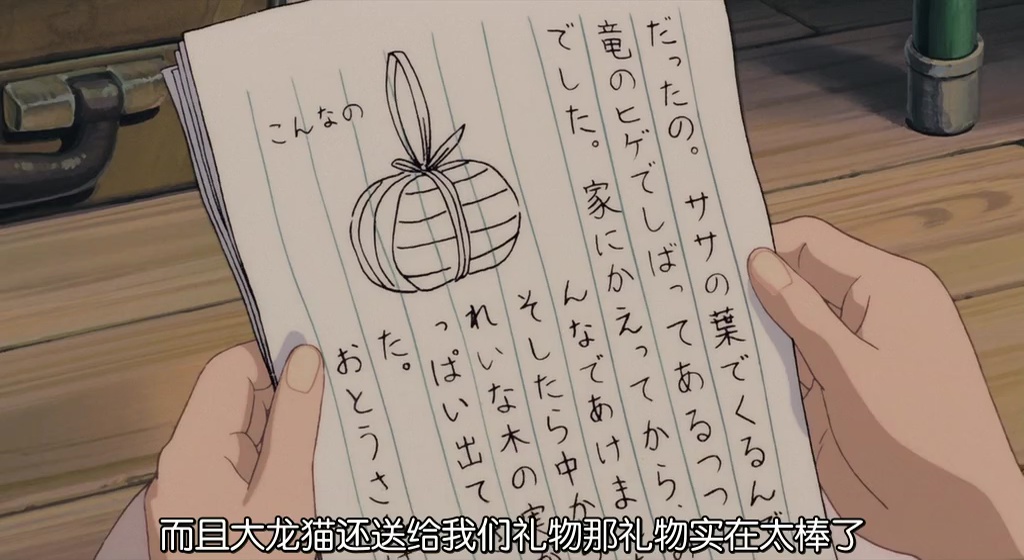 だったの。ササの葉でくるん
竜のヒゲでしばってあるつつ
でした。家にかえってから、
んなであけま
そしたら中か
れいな木の実
っぱい出て
た。
おとうさ
こんなの
而且大龙猫还送给我们礼物那礼物实在太棒了